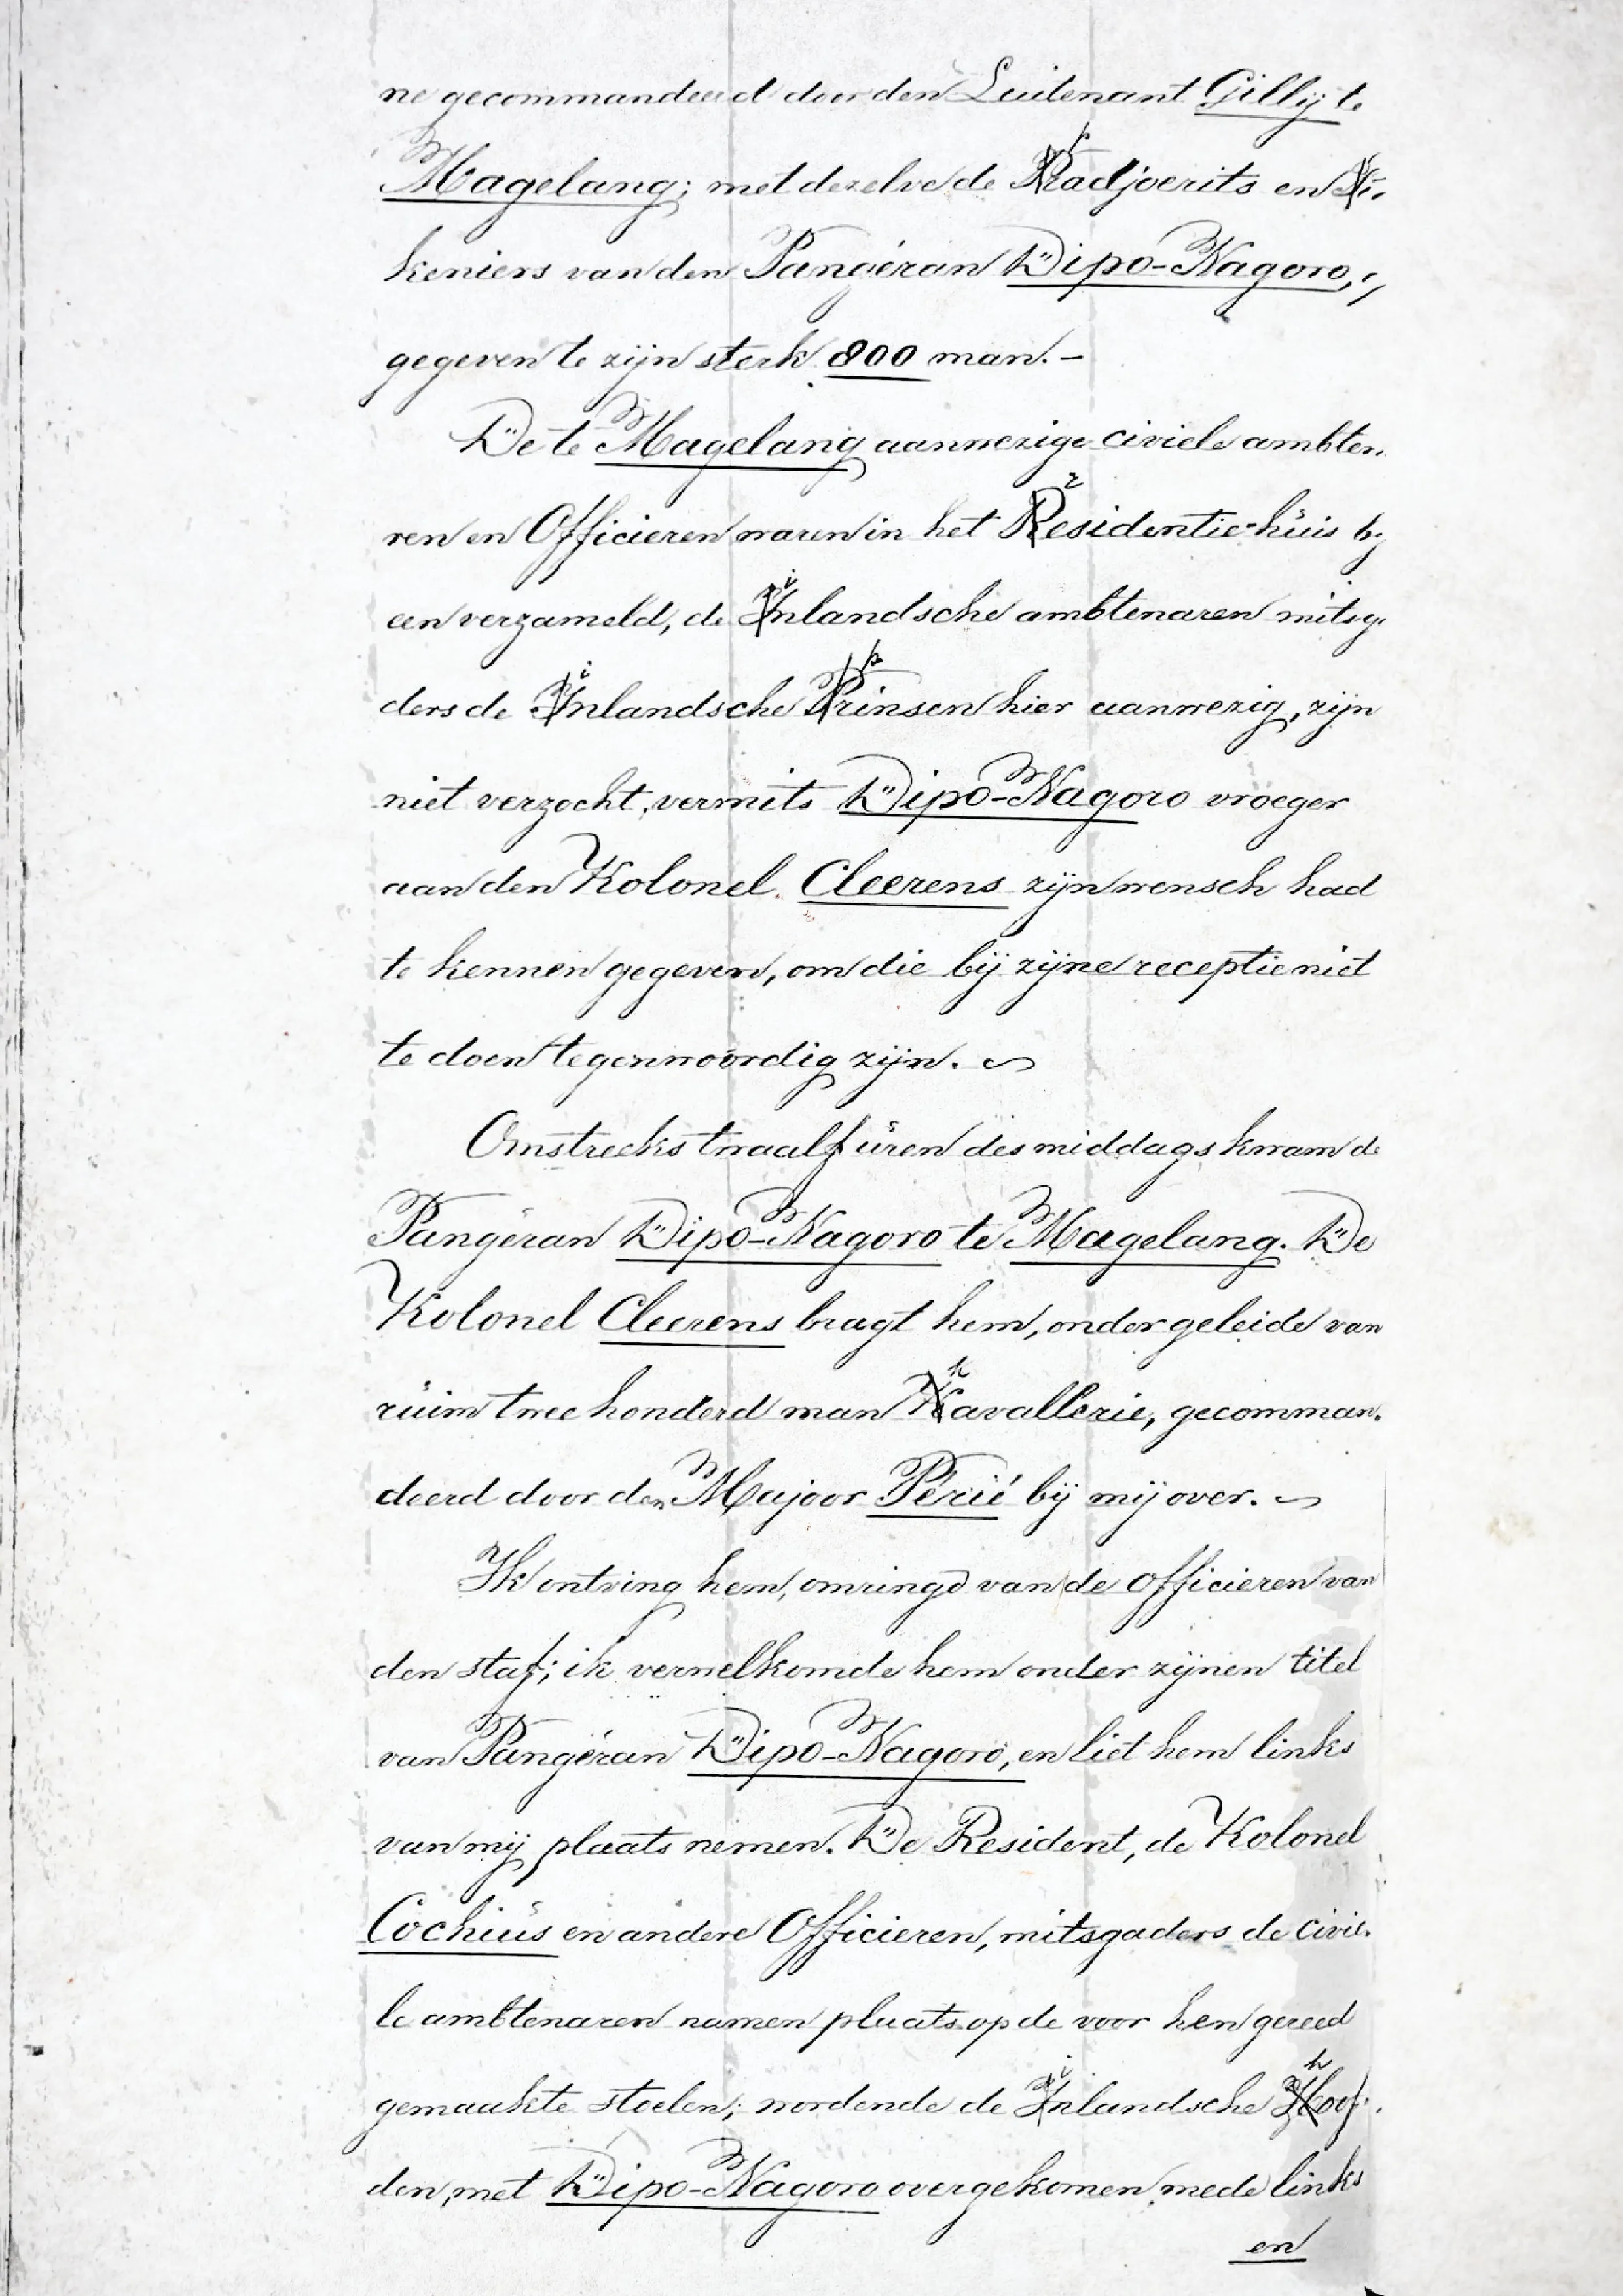 ne gecommandeerd door den Luitenant Gillij te
Magelang; met dezelve de pradjoerits en Pi-
keniers van den Pangéran Dipo-Nagoro,
gegeven te zijn sterk 800 man. –
De te Magelang aanwezige civiele ambten
ren en Officieren waren in het residentie-huis bij
een verzameld, de inlandsche ambtenaren mitsga
ders de inlandsche prinsen hier aanwezig, zijn
niet verzocht, vermits Dipo-Nagoro vroeger
aan den Kolonel Cleerens zijn wensch had
te kennen gegeven, om die bij zijne receptie niet
te doen tegenwoordig zijn.
Omstreeks twaalf uren des middags kwam de
Pangéran Dipo-Nagoro te Magelang. De
Kolonel Cleerens bragt hem, onder geleide van
ruim twee honderd man kavallerie, gecomman-
deerd door den Majoor Périé bij mij over.
Ik ontving hem, omringd van de officieren van
den staf; ik verwelkomde hem onder zijnen titel
van Pangéran Dipo-Nagoro, en liet hem links
van mij plaats nemen. De Resident, de Kolonel
Cochius en andere Officieren, mitsgaders de civie-
le ambtenaren namen plaats op de voor hen gereed
gemaakte stoelen; wordende de inlandsche hoof-
den, met Dipo-Nagoro overgekomen, mede links
en